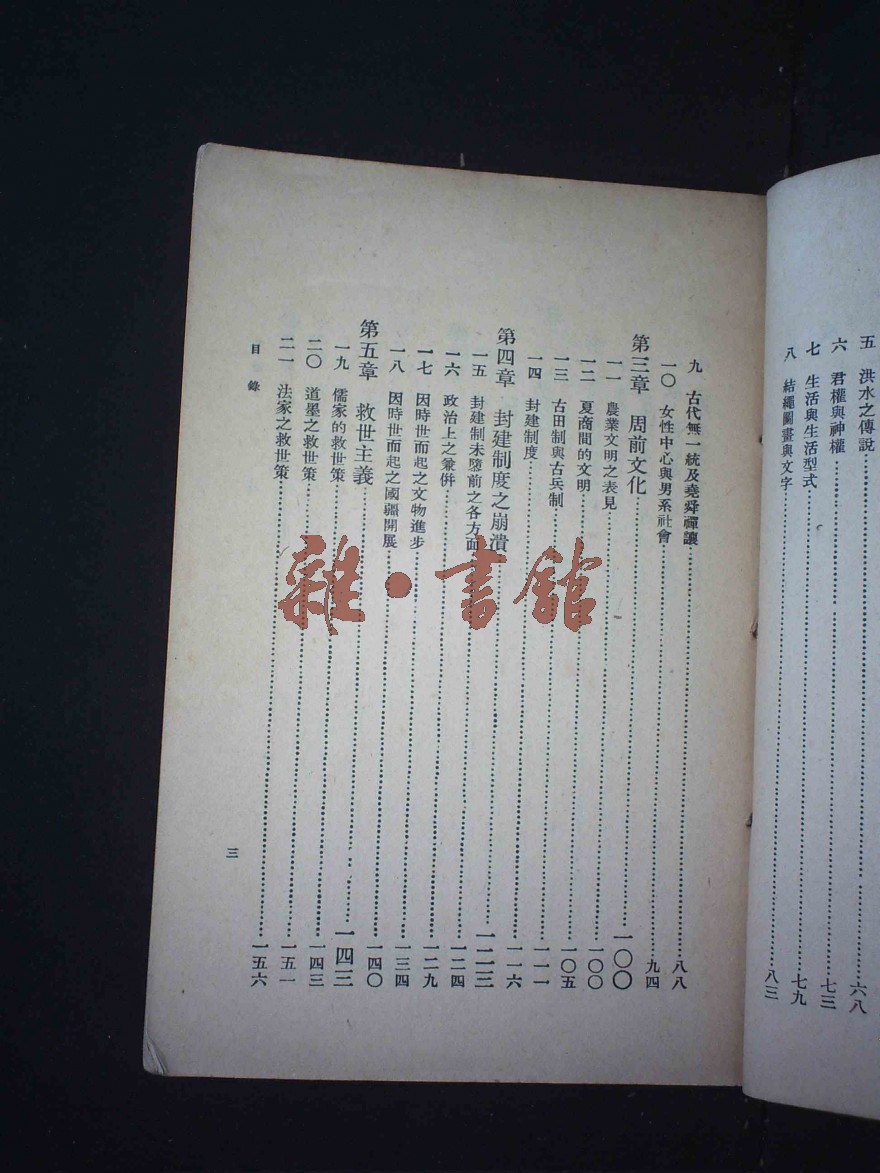 五　洪水之傳說……六八
六　君權與神權……七三
七　生活與生活型式……七九
八　結繩圖畫與文字……八三
九　古代無一統及堯舜禪讓……八八
一〇　女性中心與男系社會……九四
第三章　周前文化……一〇〇
一一　農業文明之表見……一〇〇
一二　夏商間的文明……一〇五
一三　古田制與古兵制……一一一
一四　封建制度……一一六
第四章　封建制度之崩潰……一二三
一五　封建制未墮前之各方面……一二四
一六　政治上之兼併……一二九
一七　因時世而起之文物進步……一三四
一八　因時世而起之國疆開展……一四〇
第五章　救世主義……一四三
一九　儒家的救世策……一四三
二〇　道墨之救世策……一五一
二一　法家之救世策……一五六
目錄
三
雜·書館